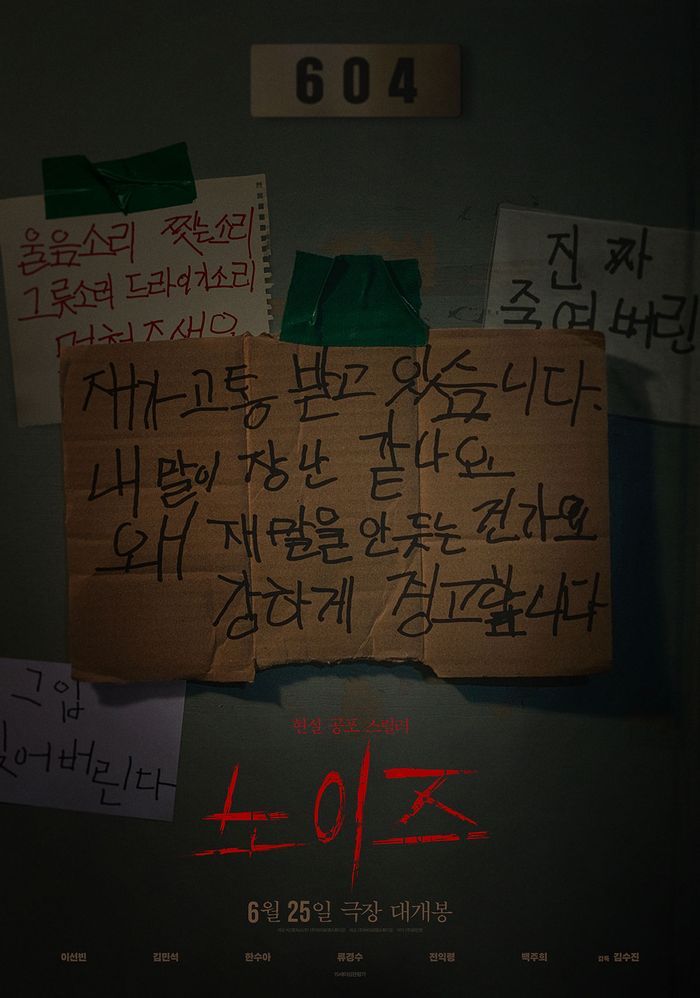 604
울음소리 찢는소리
그릇소리 드라이기소리
멈춰주세요
진짜
죽여버린
재가 고통 받고 있습니다.
내 말이 장난 같나요
왜 재 말을 안 듣는 건가요
강하게 경고합니다
그입
찢어버린다
현실 공포 스릴러
노이즈
6월 25일 극장 대개봉
이선빈 김민석 한수아 류경수 전익령 백주희 감독 김수진
15세이상관람가